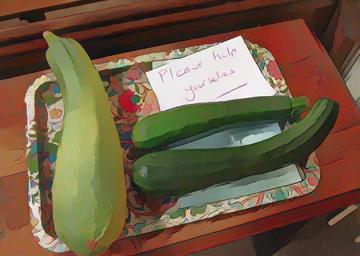 Please help
yourselves